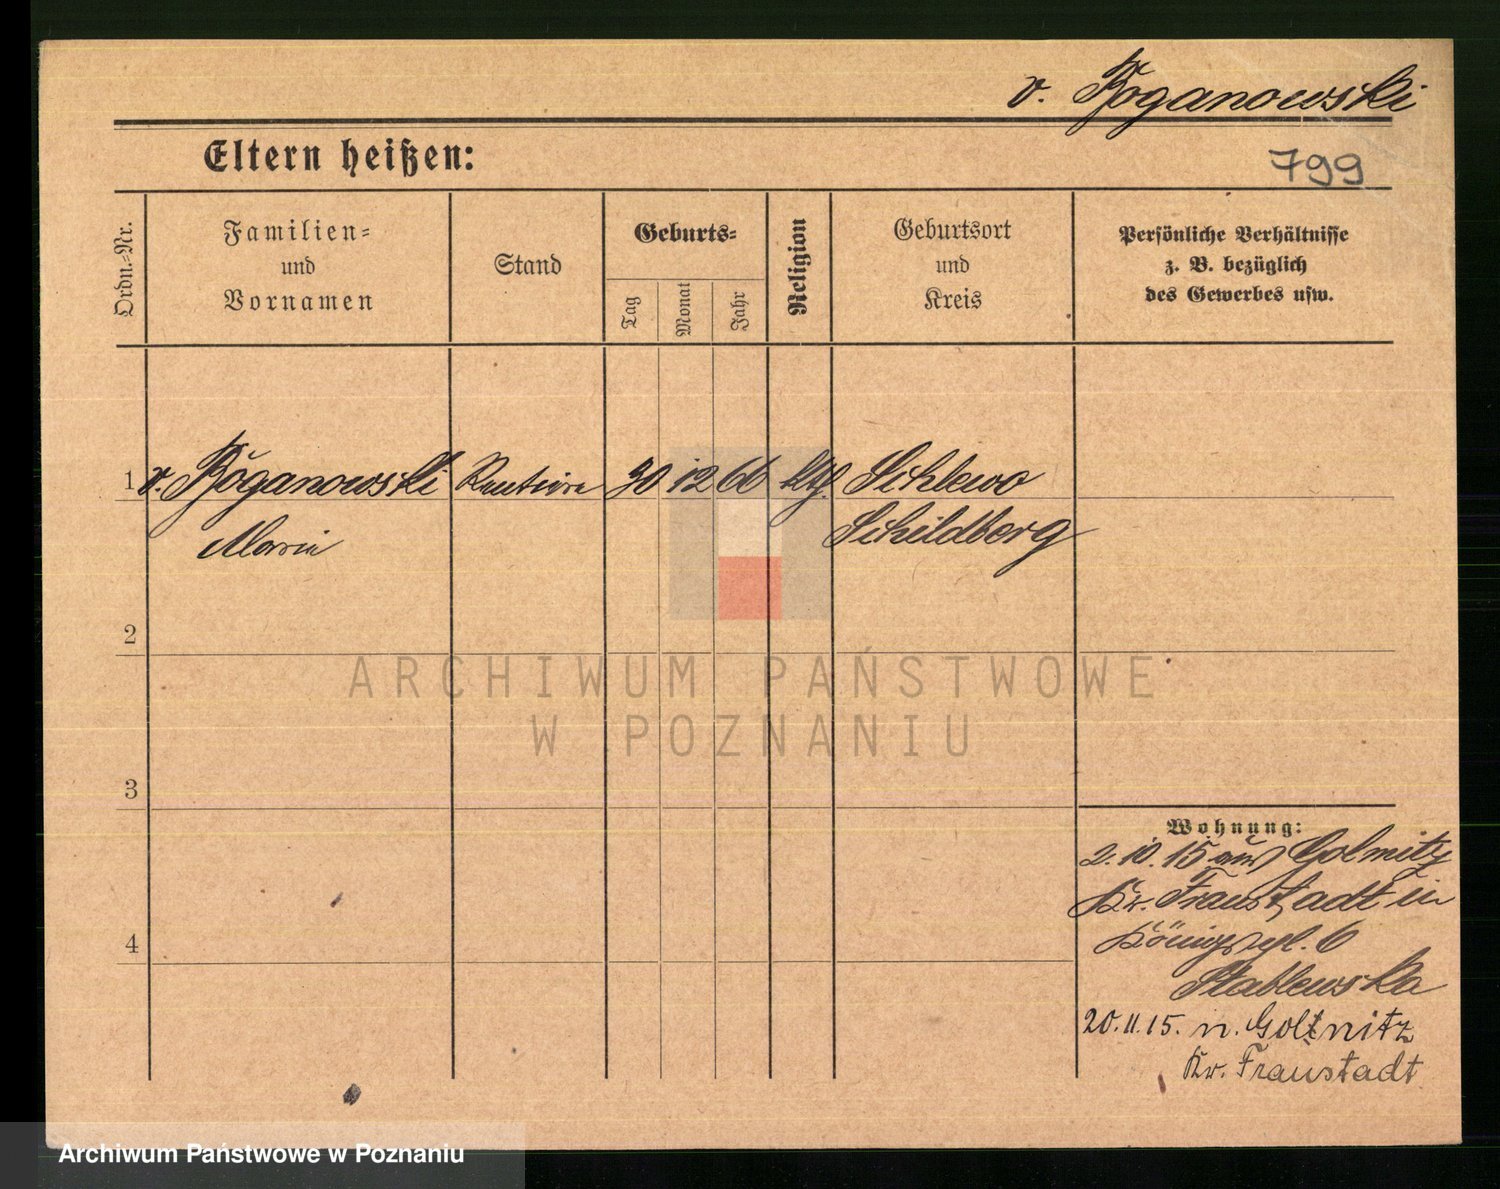 v. Roganowski
Eltern heißen:
799
Ordn.-Nr.
Familien-
und
Vornamen
Stand
Geburts-
Tag
Monat
Jahr
Religion
Geburtsort
und
Kreis
Persönliche Verhältnisse
z. B. bezüglich
des Gewerbes usw.
1 v. Roganowski Rentiere 30 12 66 kth. Siklewo
Marie Schildberg
2
3
4
Wohnung:
2. 10. 15 aus Golmitz
Kr. Fraustadt in
Königspl. 6
Stablewska
20.11.15. n. Golmitz
Kr. Fraustadt
ARCHIWUM PAŃSTWOWE
W POZNANIU
Archiwum Państwowe w Poznaniu